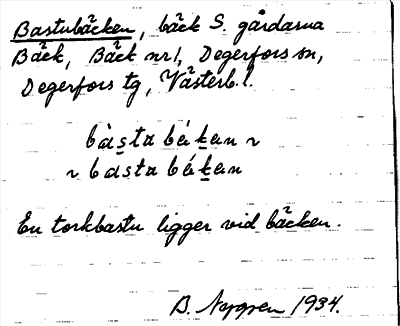 Bastubäcken, bäck S. gårdarna
Bäck, Bäck nr 1, Degerfors sn,
Degerfors tg, Västerb. l.
bàsta bákan ~
~ basta bákan
En torkbastu ligger vid bäcken.
B. Nygren 1934.